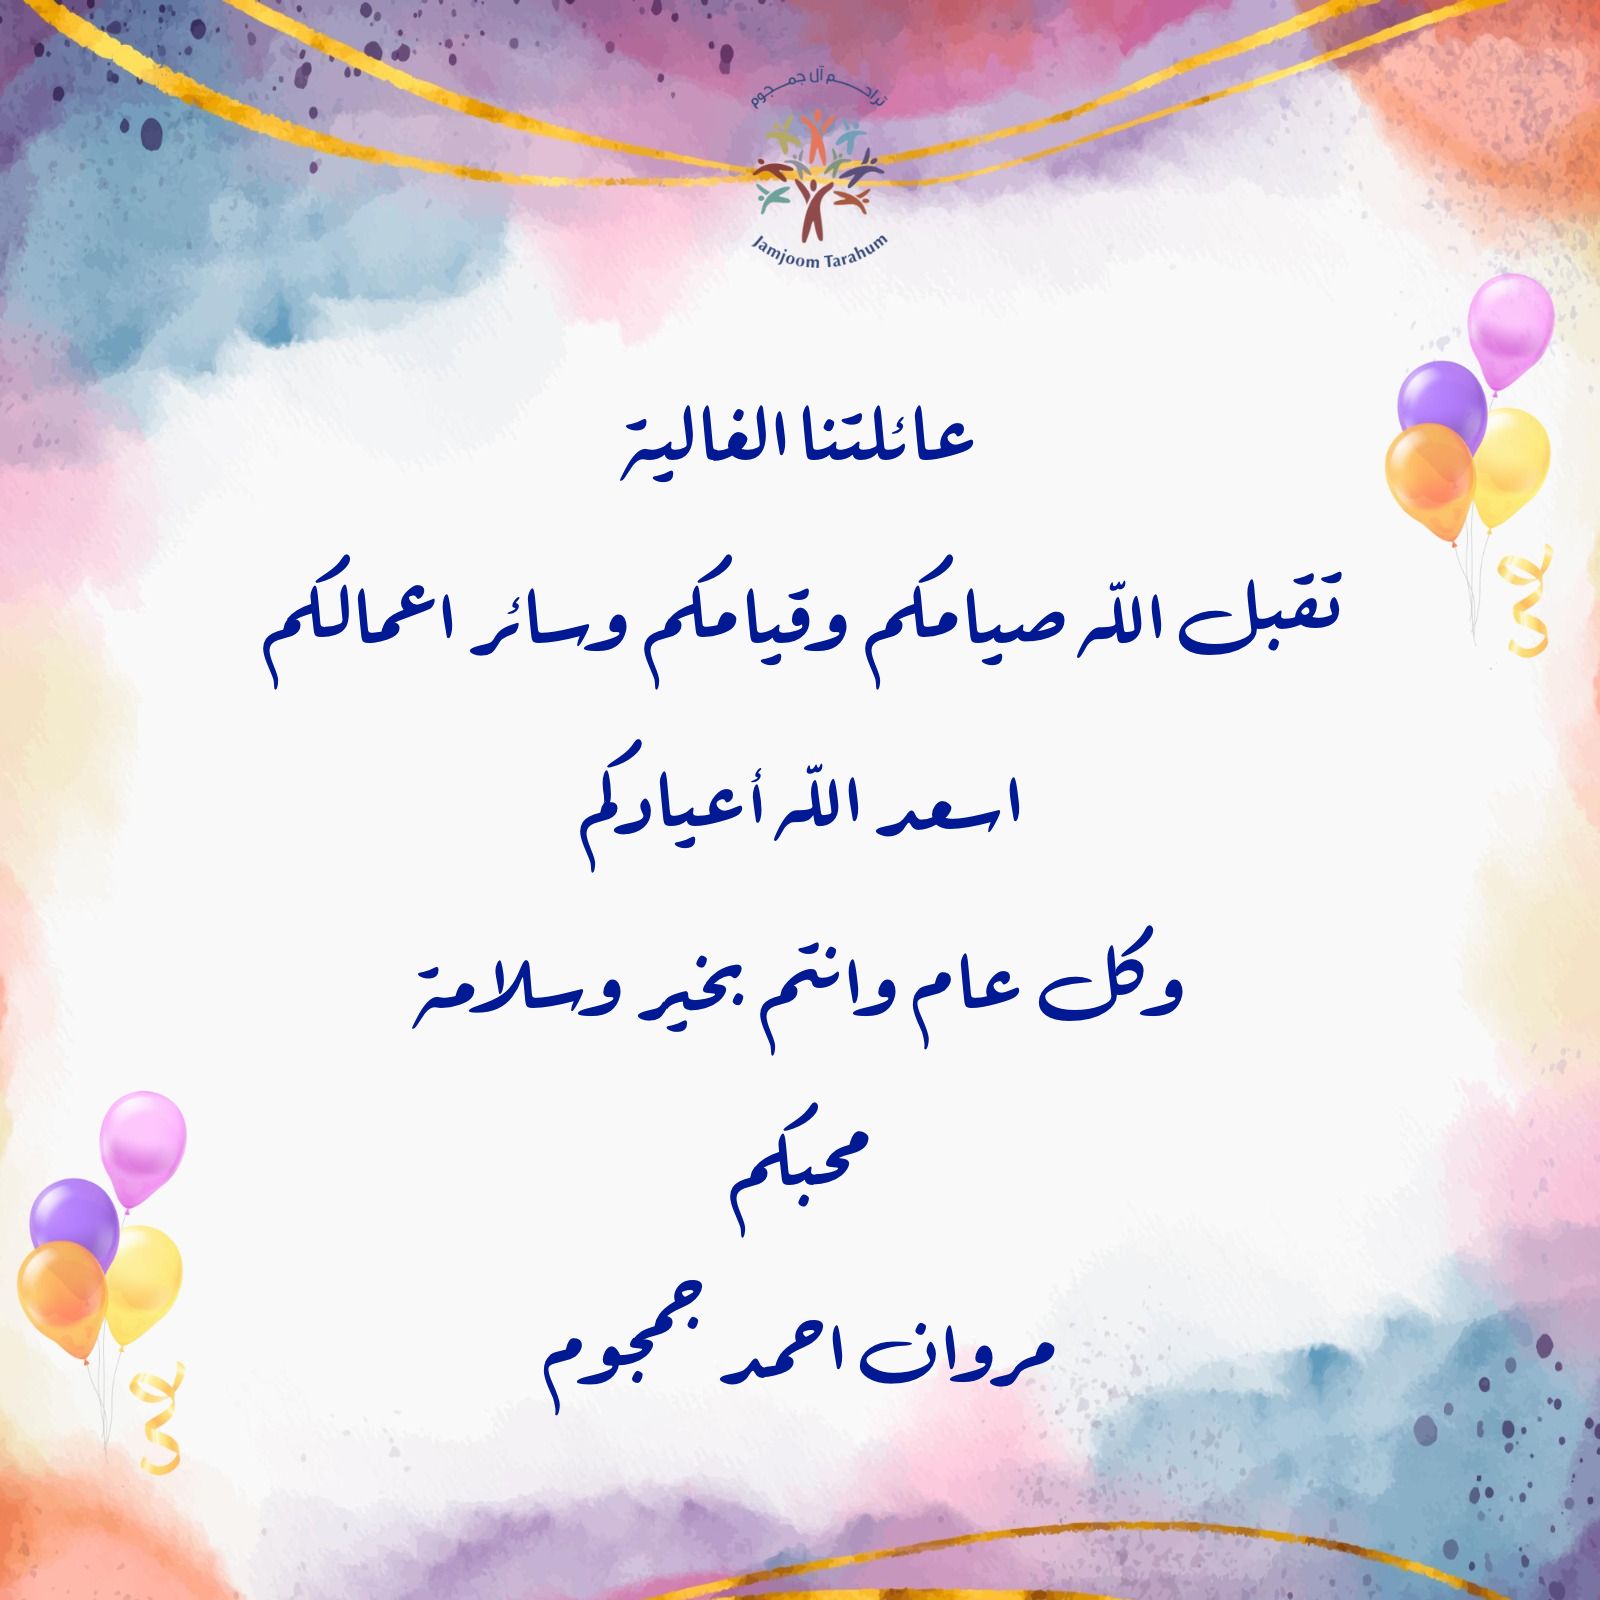 تراحم آل جمجوم
Jamjoom Tarahum
عائلتنا الغالية
تقبل اللّه صيامكم وقيامكم وسائر اعمالكم
اسعد اللّه أعيادكم
وكل عام وانتم بخير وسلامة
محبكم
مروان احمد جمجوم